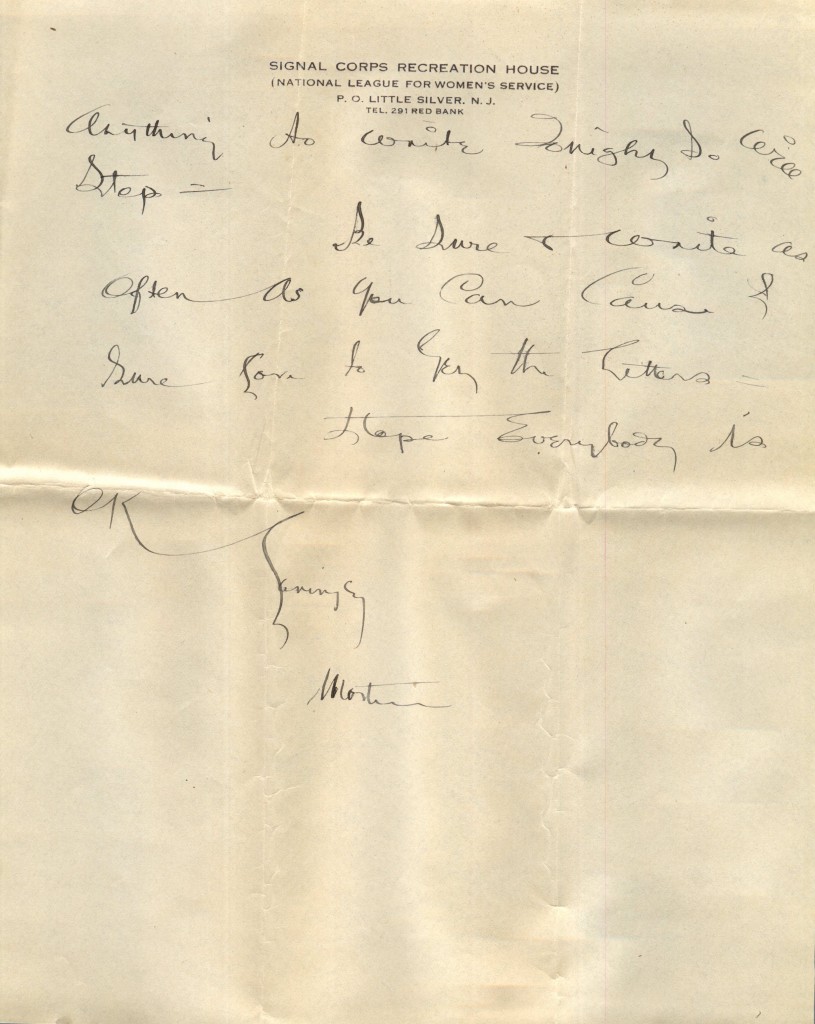 SIGNAL CORPS RECREATION HOUSE
(NATIONAL LEAGUE FOR WOMEN'S SERVICE)
P. O. LITTLE SILVER, N. J.
TEL. 291 RED BANK
Anything to write Tonight So Will
Stop =
Be Sure & write as
Often as you Can Cause I
Sure Love to Get the Letters =
Hope Everybody is
OK
Lovingly
Martin